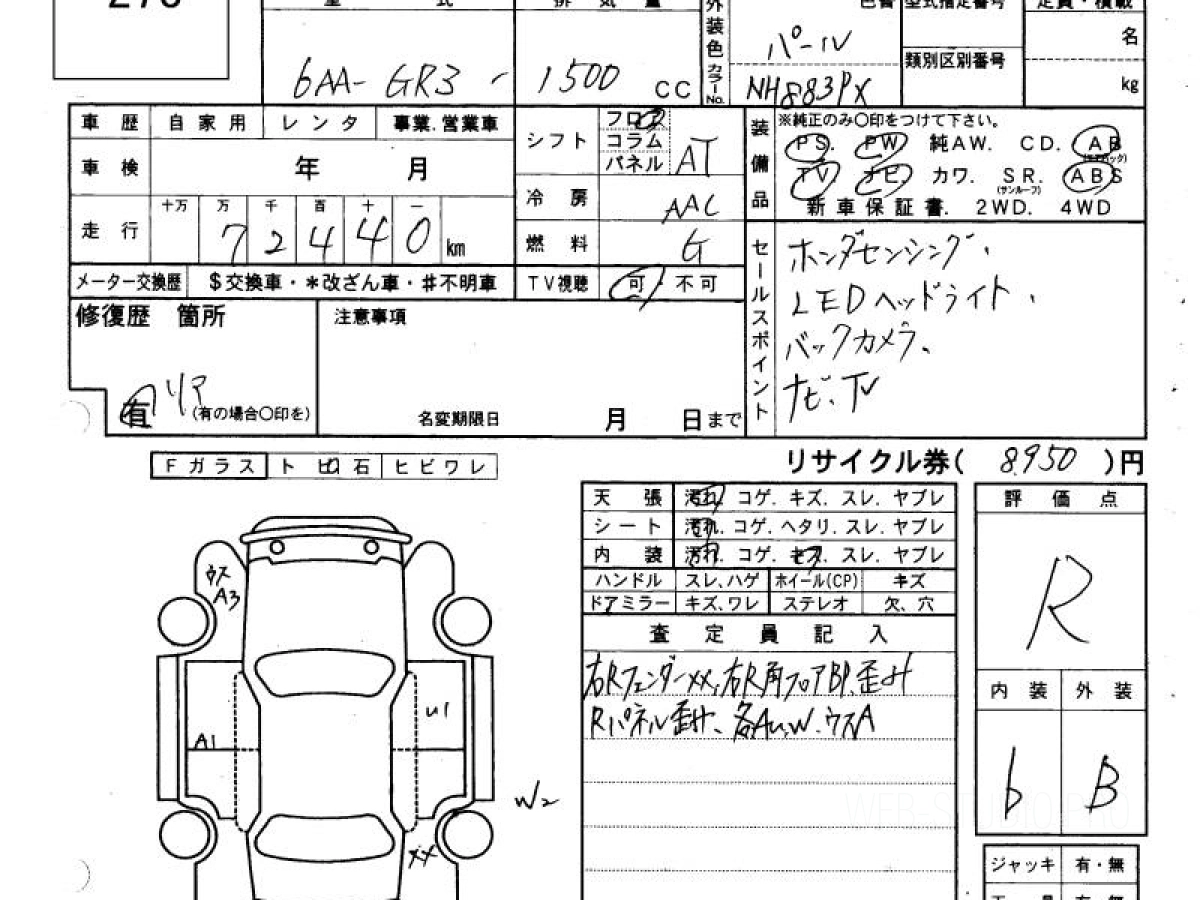 型 式
排 気 量
外装色
カラーNo.
6AA-GR3
1500 CC
パール
NH883PX
類別区別番号
名
kg
車 歴
自 家 用
レ ン タ
事業.営業車
車 検
年 月
走 行
十万 万 千 百 十 一
7 2 4 4 0 km
メーター交換歴
$交換車・*改ざん車・#不明車
シフト
フロア
コラム
パネル
AT
冷 房
AAC
燃 料
G
TV視聴
可・不可
装備品
※純正のみ〇印をつけて下さい。
PS. PW 純AW. CD. AB
(エアバッグ)
TV ナビ. カワ. SR. ABS
(サンルーフ)
新車保証書. 2WD. 4WD
セールスポイント
ホンダセンシング、
LEDヘッドライト、
バックカメラ、
ナビ、TV
修復歴 箇所
有
リア
(有の場合〇印を)
注意事項
名変期限日
月 日まで
Fガラス
ト ビ 石
ヒビワレ
リサイクル券( 8950 )円
天 張
汚れ. コゲ. キズ. スレ. ヤブレ
シ ー ト
汚れ. コゲ. ヘタリ. スレ. ヤブレ
内 装
汚れ. コゲ. キズ. スレ. ヤブレ
ハンドル
スレ、ハゲ
ホイール(CP)
キズ
ドアミラー
キズ、ワレ
ステレオ
欠、穴
査 定 員 記 入
右RフェンダーXX、右R角フロアBP、歪み
Rパネル歪み、各AU、W、ウスA
評 価 点
R
内 装
外 装
b
B
ジャッキ
有・無
ウス
A3
A1
U1
W2
XX
WEB-STUDIO.PRO